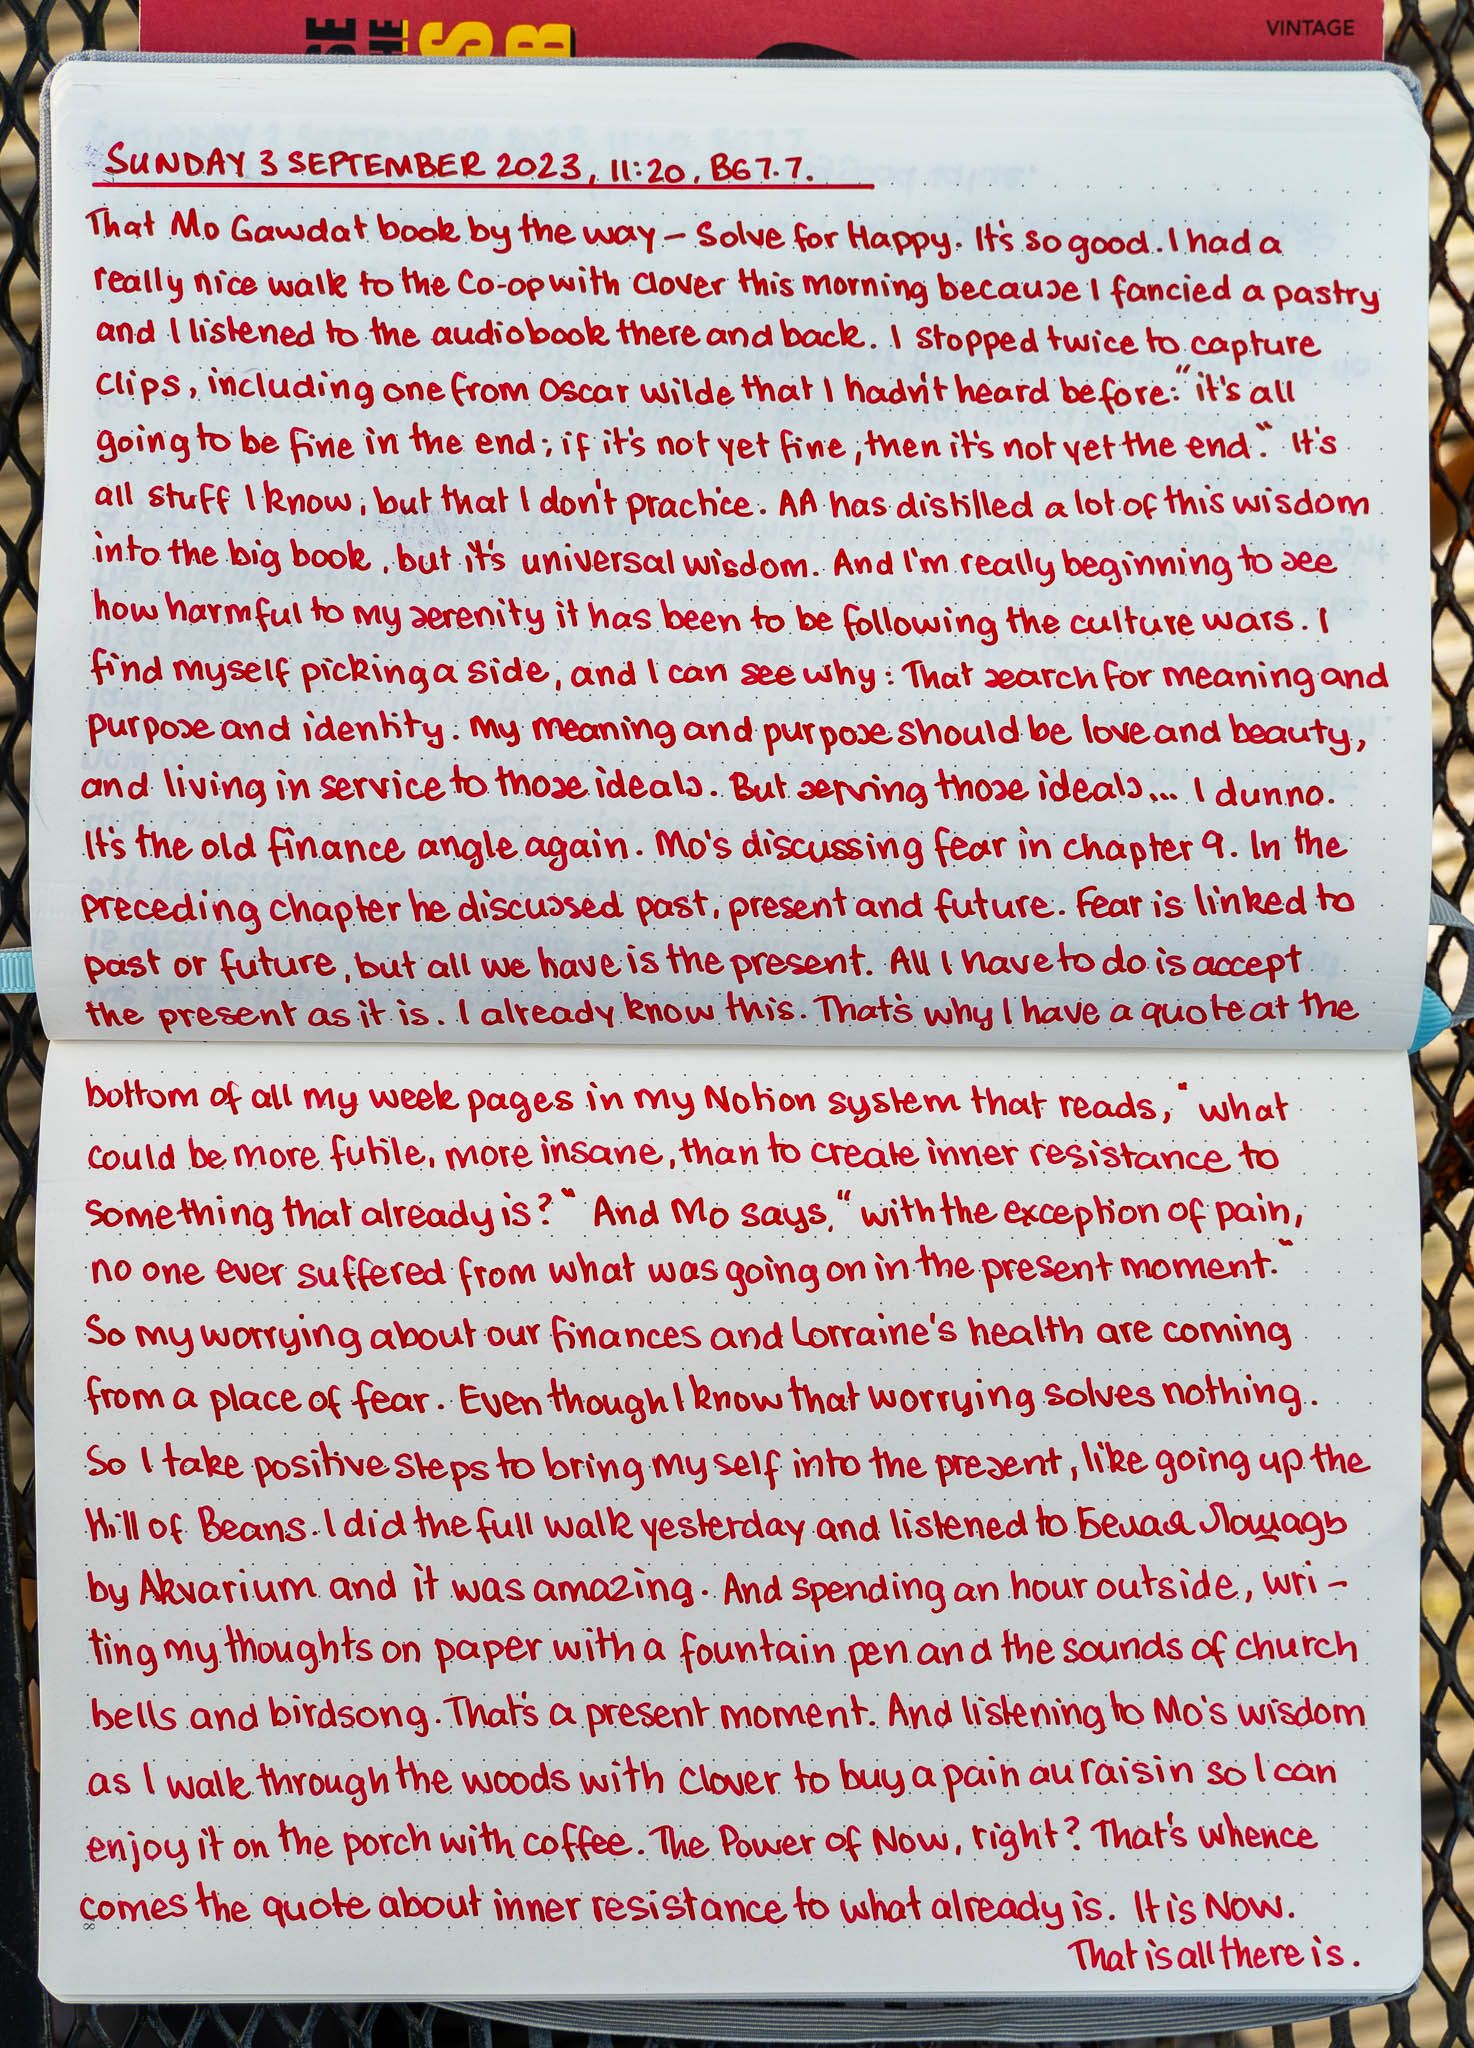 VINTAGE
SUNDAY 3 SEPTEMBER 2023, 11:20, BG7.7.
That Mo Gawdat book by the way – Solve for Happy. It's so good. I had a
really nice walk to the Co-op with Clover this morning because I fancied a pastry
and I listened to the audiobook there and back. I stopped twice to capture
clips, including one from Oscar Wilde that I hadn't heard before: "it's all
going to be fine in the end; if it's not yet fine, then it's not yet the end." It's
all stuff I know, but that I don't practice. AA has distilled a lot of this wisdom
into the big book, but it's universal wisdom. And I'm really beginning to see
how harmful to my serenity it has been to be following the culture wars. I
find myself picking a side, and I can see why: That search for meaning and
purpose and identity. My meaning and purpose should be love and beauty,
and living in service to those ideals. But serving those ideals... I dunno.
It's the old finance angle again. Mo's discussing fear in chapter 9. In the
preceding chapter he discussed past, present and future. Fear is linked to
past or future, but all we have is the present. All I have to do is accept
the present as it is. I already know this. That's why I have a quote at the
bottom of all my week pages in my Notion system that reads, "what
could be more futile, more insane, than to create inner resistance to
something that already is?" And Mo says, "with the exception of pain,
no one ever suffered from what was going on in the present moment."
So my worrying about our finances and Lorraine's health are coming
from a place of fear. Even though I know that worrying solves nothing.
So I take positive steps to bring myself into the present, like going up the
Hill of Beans. I did the full walk yesterday and listened to Белая Лошадь
by Akvarium and it was amazing. And spending an hour outside, wri-
ting my thoughts on paper with a fountain pen and the sounds of church
bells and birdsong. That's a present moment. And listening to Mo's wisdom
as I walk through the woods with Clover to buy a pain au raisin so I can
enjoy it on the porch with coffee. The Power of Now, right? That's whence
comes the quote about inner resistance to what already is. It is Now.
That is all there is.